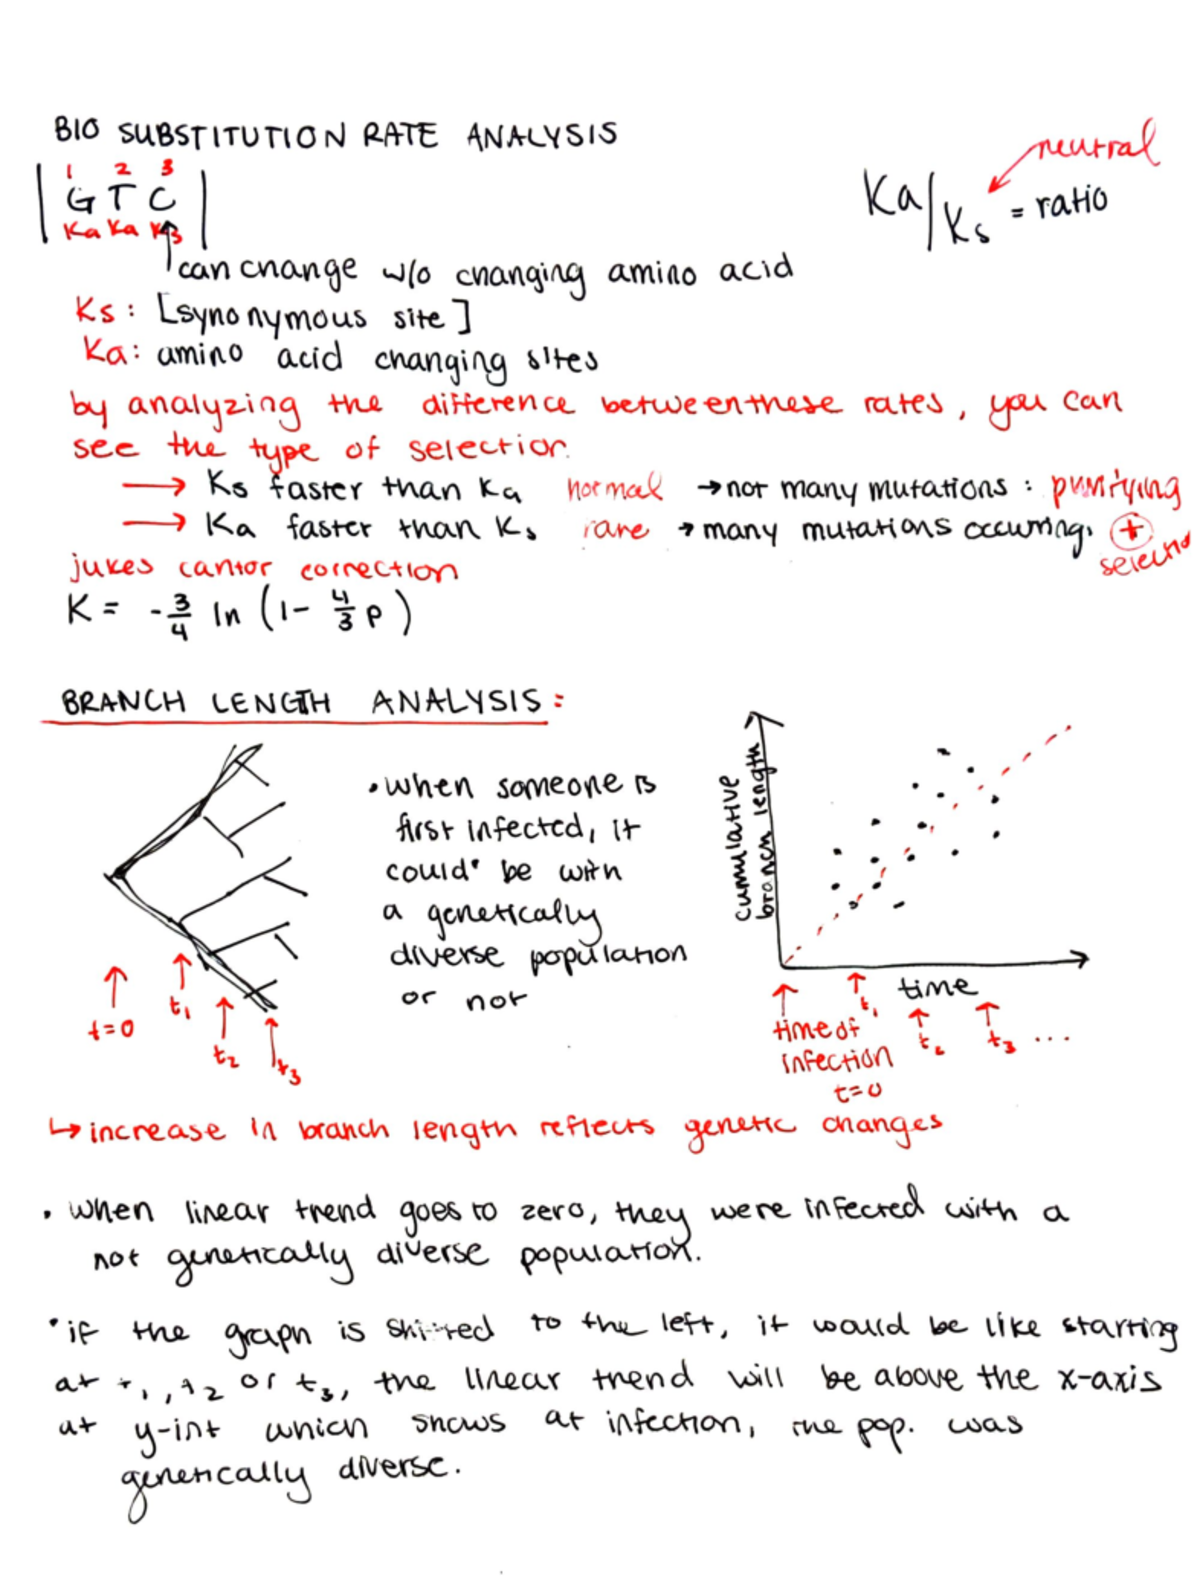 BIO SUBSTITUTION RATE ANALYSIS
1 2 3
G T C
Ka Ka Ks
can change w/o changing amino acid
neutral
Ka/Ks = ratio
Ks: [synonymous site]
Ka: amino acid changing sites
by analyzing the difference between these rates, you can
see the type of selection.
→ Ks faster than Ka normal → not many mutations : purifying
→ Ka faster than Ks rare → many mutations occurring. + selection
jukes cantor correction
K = -3/4 ln (1- 4/3 p)
BRANCH LENGTH ANALYSIS:
• when someone is
first infected, it
could be with
a genetically
diverse population
or not
t=0
t1
t2
t3
cumulative
branch length
time
time of
infection
t=0
t1
t2
t3 ...
↳ increase in branch length reflects genetic changes
• when linear trend goes to zero, they were infected with a
not genetically diverse population.
• if the graph is shifted to the left, it would be like starting
at t1, t2 or t3, the linear trend will be above the x-axis
at y-int which shows at infection, the pop. was
genetically diverse.